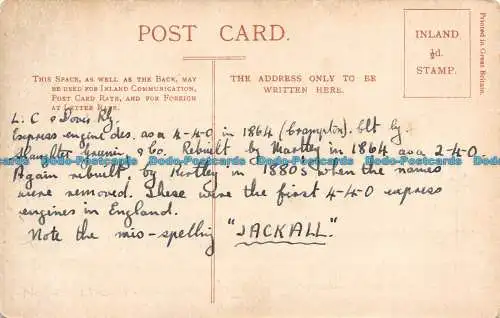 POST CARD.
INLAND
½d.
STAMP.
Printed in Great Britain.
THIS SPACE, AS WELL AS THE BACK, MAY
BE USED FOR INLAND COMMUNICATION,
POST CARD RATE, AND FOR FOREIGN
AT LETTER RATE.
THE ADDRESS ONLY TO BE
WRITTEN HERE.
L. C & Dover Rly.
Express engine des. as a 4-4-0 in 1864 (Crampton). Blt by
Slaughter Gruning & Co. Rebuilt by Martley in 1864 as a 2-4-0.
Again rebuilt, by Kirtley in 1880s when the names
were removed. These were the first 4-4-0 express
engines in England.
Note the mis-spelling "JACKALL."
Dodo-Postcards Dodo-Postcards Dodo-Postcards Dodo-Postcards Dodo-Postcards Dodo-Postcards